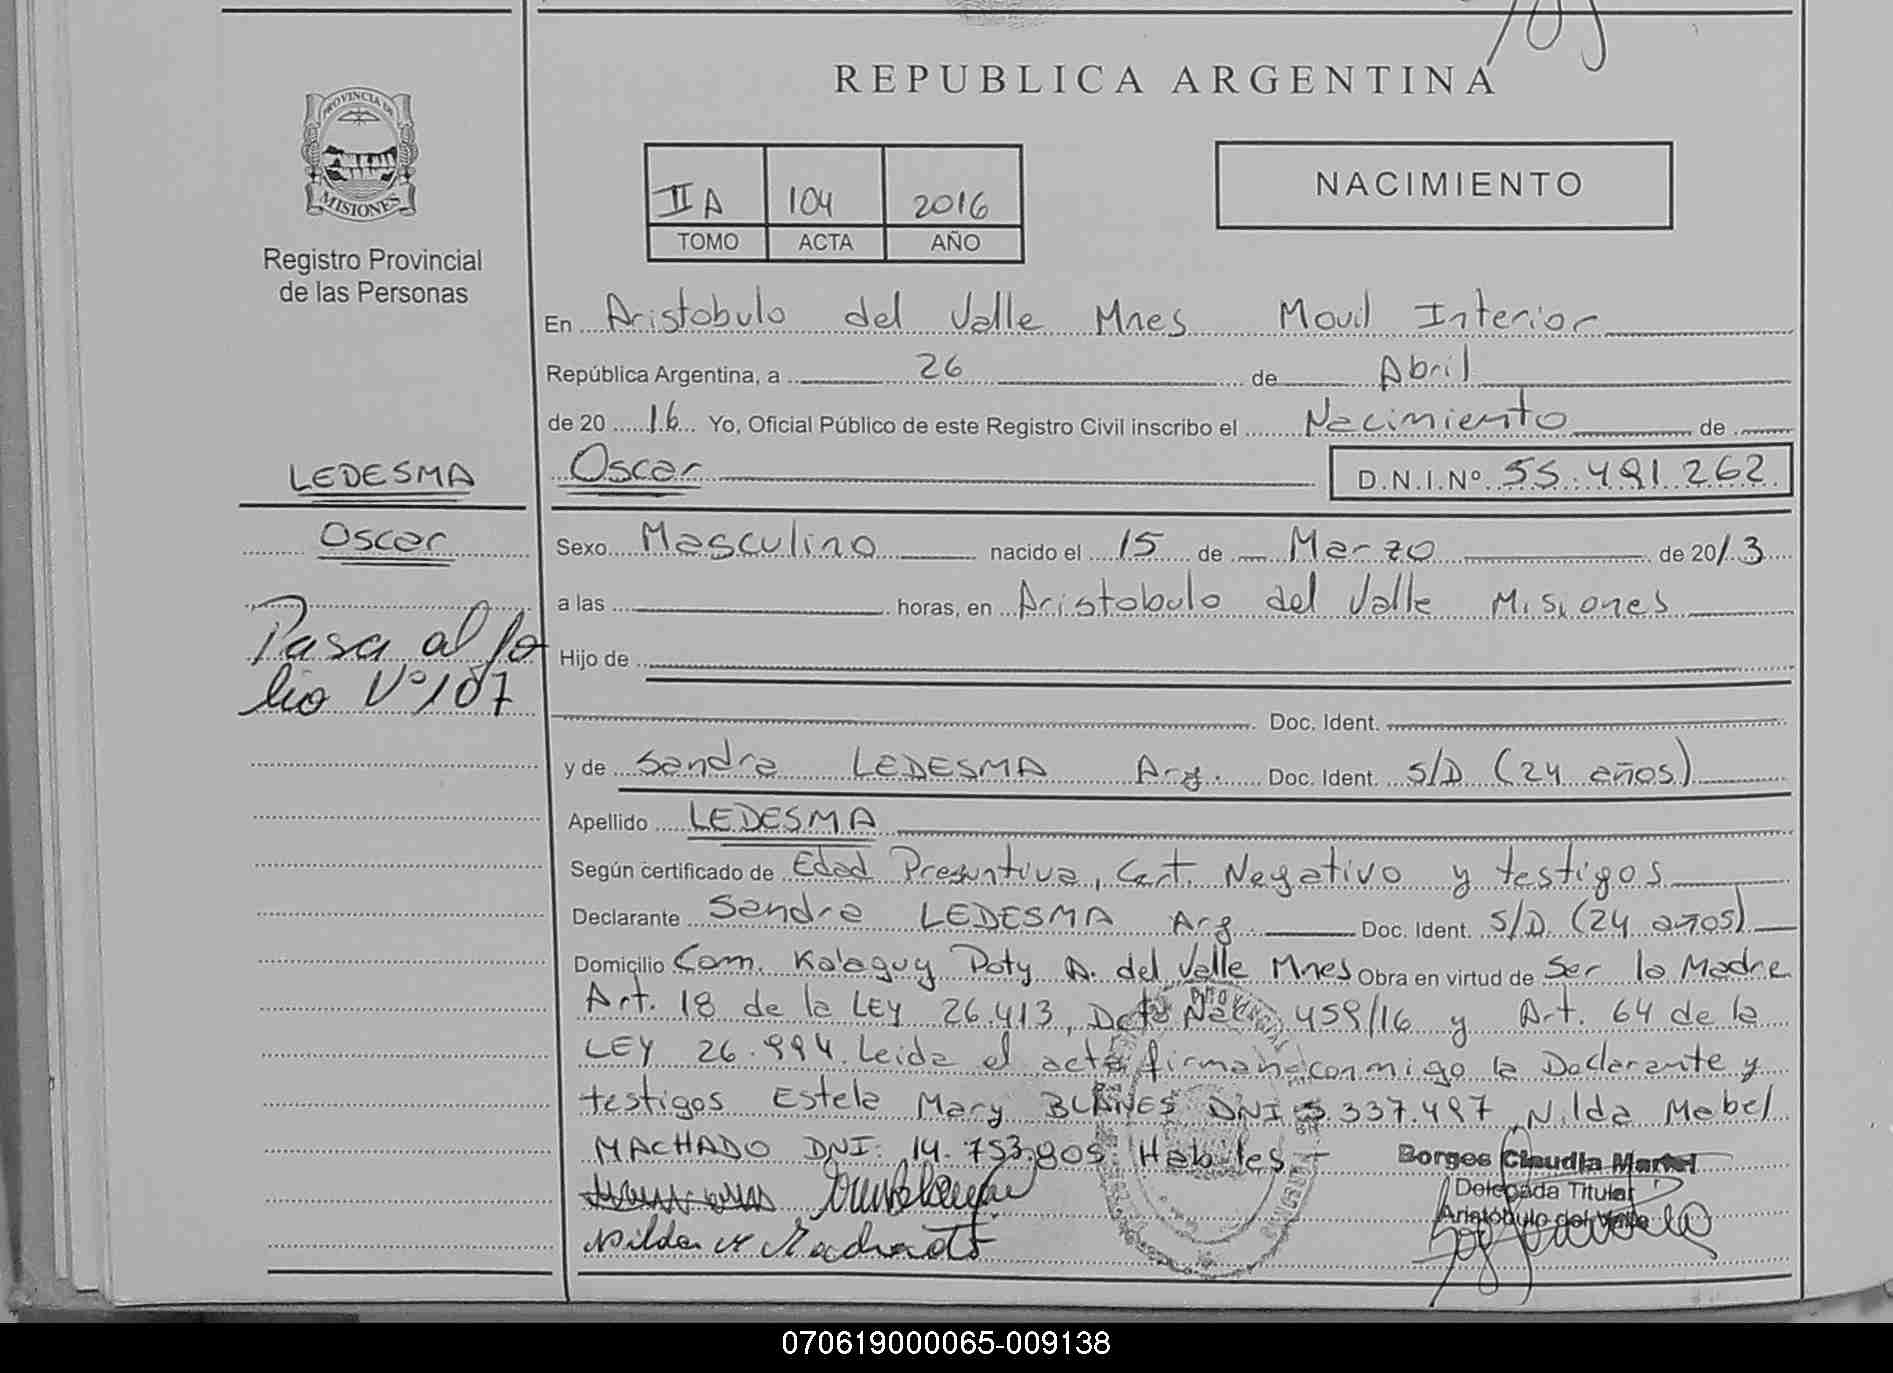 REPUBLICA ARGENTINA
PROVINCIA DE
MISIONES
Registro Provincial
de las Personas
II A 104 2016
TOMO ACTA AÑO
NACIMIENTO
En Aristobulo del Valle Mnes Movil Interior
República Argentina, a 26 de Abril
de 20 16 Yo, Oficial Público de este Registro Civil inscribo el Nacimiento de
Oscar D.N.I.Nº 55.491.262
LEDESMA
Oscar
Pasa al fo
lio Nº 107
Sexo Masculino nacido el 15 de Marzo de 2013
a las horas, en Aristobulo del Valle Misiones
Hijo de
Doc. Ident.
y de Sandra LEDESMA Arg. Doc. Ident. S/D (24 años)
Apellido LEDESMA
Según certificado de Edad Presuntiva, Cert. Negativo y testigos
Declarante Sandra LEDESMA Arg. Doc. Ident. S/D (24 años)
Domicilio Com. Ka'aguy Poty A. del Valle Mnes Obra en virtud de Ser la Madre
Art. 18 de la LEY 26.413, Dcto Nac 459/16 y Art. 64 de la
LEY 26.994. Leida el acta firman conmigo la Declarante y
testigos Estela Mary BLANES DNI 5.337.497, Nilda Mabel
MACHADO DNI: 14.753.805 Habiles
Borges Claudia Marisel
Delegada Titular
Aristóbulo del Valle
070619000065-009138